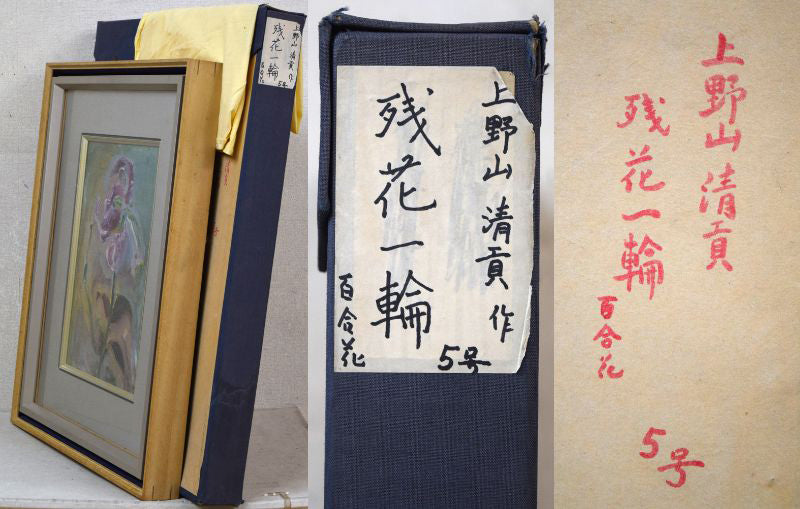 上野山清貢作
残花一輪
百合花
5号
上野山 清貢 作
残花一輪
百合花
5号
上野山 清貢
残花一輪
百合花
5号